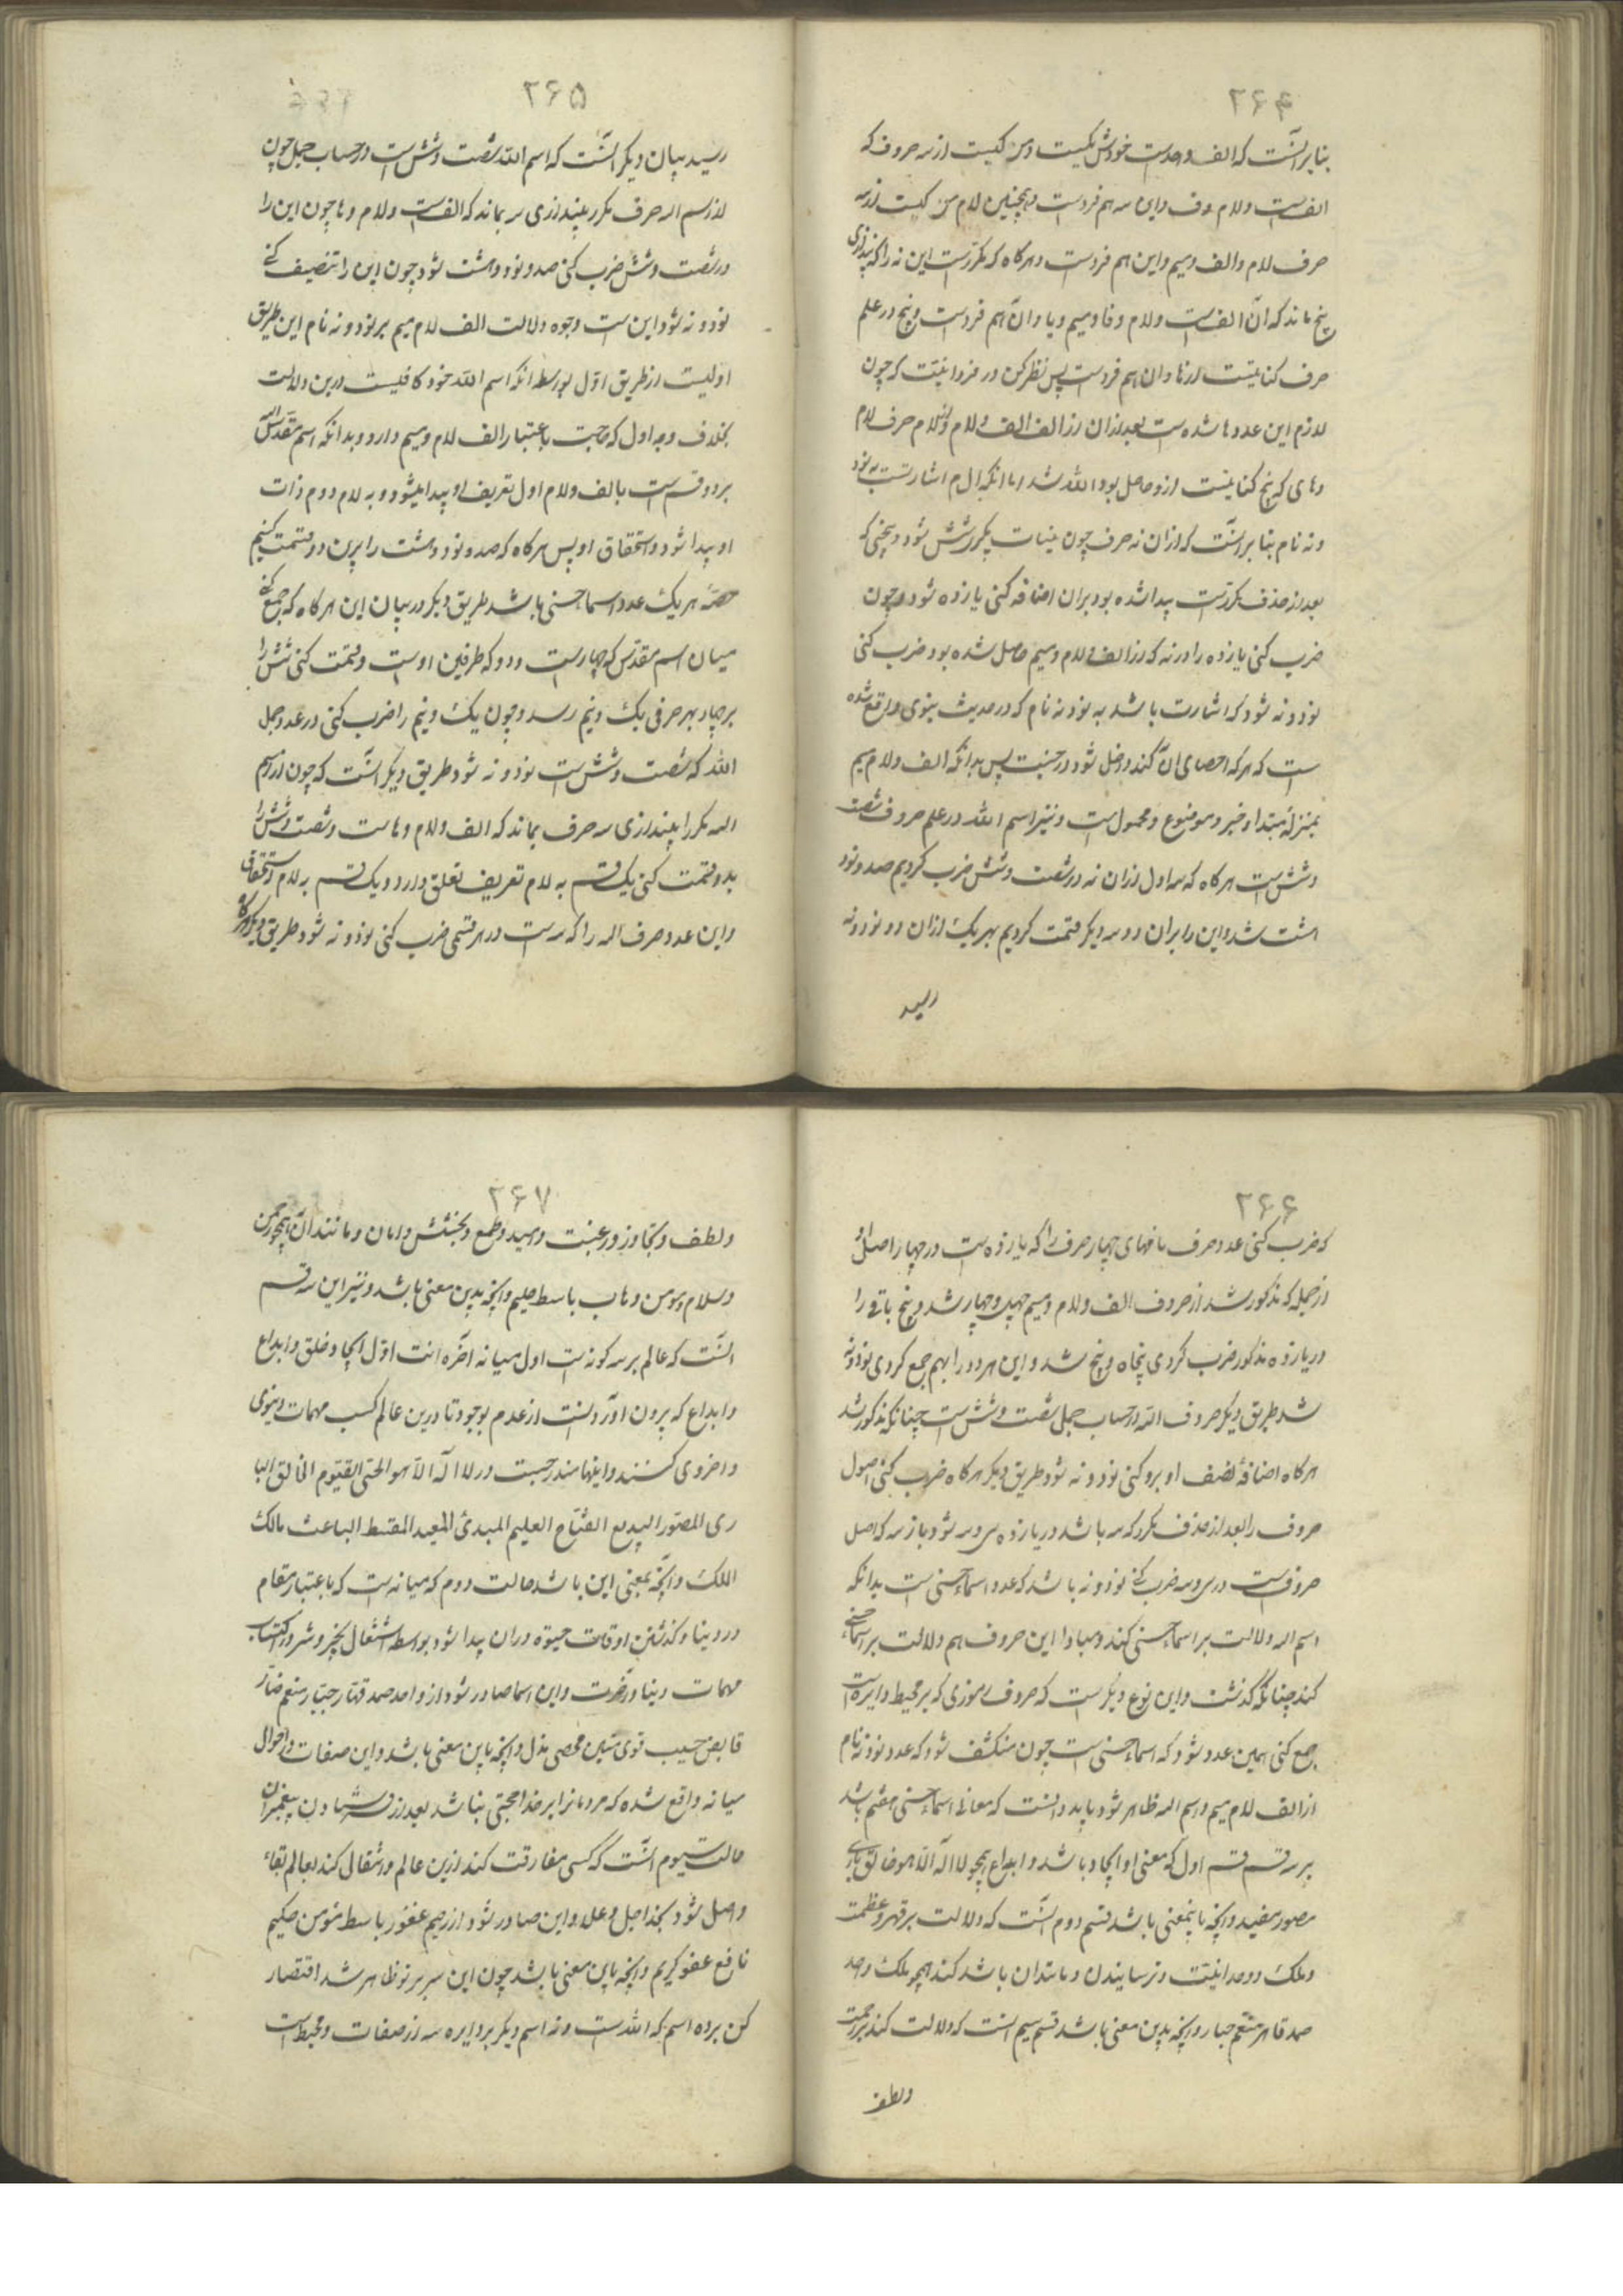 ۲۶۴
بنابر آنست که الف واحدست خودش یکیست و مرکبست از سه حروف که
الف است و لام و ف و این سه هم فردست و همچنین لام مرکبست از سه
حرف لام و الف و میم و این هم فردست و هر کاه که مکررست این نه را که بیندازی
پنج ماند که آن الف است و لام و فا و میم و یا و آن هم فردست و پنج در علم
حرف کنایتست از ها و آن هم فردست پس نظر کن در فردانیت که چون
لازم این عددها شده است بعد از آن از الف الف و لام و از لام حرف لام
و های که پنج کنایتست ازو حاصل بود الله شد اما آنکه ال م اشارتست به نود
و نه نام بنابر آنست که از آن نه حرف چون بینات مکرر شش شود و پنجی که
بعد از حذف مکررست پیدا شده بود بر آن اضافه کنی یازده شود و چون
ضرب کنی یازده را در نه که از الف و لام و میم حاصل شده بود ضرب کنی
نود و نه شود که اشارت باشد به نود و نه نام که در حدیث نبوی واقع شده
است که هر که احصای آن کند داخل شود در جنت پس بدانکه الف و لام میم
بمنزلهٔ مبتدا و خبر و موضوع و محمول است و نیز اسم الله در علم حروف شصت
و شش است هر کاه که سه اول از آن نه در شصت و شش ضرب کردیم صد و نود
هشت شد و این را بر آن دو سه دیکر قسمت کردیم بهر یک از آن دو نود و نه
رسید
۲۶۵
رسید بیان دیکر آنست که اسم الله شصت و شش است در حساب جمل چون
از اسم اله حرف مکرر بیندازی سه بماند که الف است و لام و ها چون این را
در شصت و شش ضرب کنی صد و نود و هشت شود چون این را تنصیف کنی
نود و نه شود این است وجوه دلالت الف لام میم بر نود و نه نام این طریق
اولیست از طریق اول بواسطه آنکه اسم الله خود کافیست درین دلالت
بخلاف وجه اول که حاجت باعتبار الف لام و میم دارد و بدانکه اسم مقدس الله
بر دو قسم است بالف و لام اول تعریف او پیدا میشود و به لام دوم ذات
او پیدا شود و استحقاق او پس هر کاه که صد و نود و هشت را برین دو قسمت کنیم
حصهٔ هر یک عدد اسماء حسنی باشد طریق دیکر در بیان این هر کاه که جمع کنی
میان اسم مقدس که چهارست و دو که طرفین اوست و قسمت کنی شش را
بر چهار بهر حرفی یک و نیم رسد و چون یک و نیم را ضرب کنی در عدد جمل
الله که شصت و شش است نود و نه شود طریق دیکر آنست که چون از اسم
اله مکرر را بیندازی سه حرف بماند که الف و لام و هاست و شصت و شش را
بدو قسمت کنی یک قسم به لام تعریف تعلق دارد و یک قسم به لام استحقاق
و این عدد حرف اله را که سه است در هر قسمی ضرب کنی نود و نه شود طریق دیکر هر کاه
۲۶۶
که ضرب کنی عدد حرف ما فهای چهار حرف را که یازده است در چهار اصل او
از جمله که مذکور شد از حروف الف و لام و میم چهل و چهار شد و پنج باقی را
در یازده مذکور ضرب کردی پنجاه و پنج شد و این هر دو را بهم جمع کردی نود و نه
شد طریق دیکر حروف الله در حساب جمل شصت و شش است چنانکه مذکور شد
هر کاه اضافهٔ نصف او برو کنی نود و نه شود طریق دیکر هر کاه ضرب کنی اصول
حروف را بعد از حذف مکرر که سه باشد در یازده سی و سه شود باز سه که اصل
حروف است در سی و سه ضرب کنی نود و نه باشد که عدد اسماء حسنی است بدانکه
اسم اله دلالت بر اسماء حسنی کند و مبادا این حروف هم دلالت بر اسماء حسنی
کند چنانکه گذشت و این نوع دیگر است که حروف رموزی که بر محیط دایره است
جمع کنی همین عدد شود که اسماء حسنی است چون منکشف شود که عدد نود و نه نام
از الف لام میم و اسم اله ظاهر شود باید دانست که معانی اسماء حسنی منقسم باشد
بر سه قسم قسم اول که معنی او ایجاد باشد و ابداع همچو لا اله الا هو خالق باری
مصور مفید و آنچه باینمعنی باشد قسم دوم آنست که دلالت بر قهر و عظمت
و ملک و وحدانیت و ترسانیدن و مانند آن باشد کند همچو ملک واحد
صمد قاهر منتقم جبار و آنچه بدین معنی باشد قسم سیم آنست که دلالت کند بر رحمت
و لطف
۲۶۷
و لطف و تجاوز و رغبت و امید و طمع و بخشش و امان و مانند آن همچو رحمن
و سلام و مومن و هاب باسط حلیم و آنچه بدین معنی باشد و نیز این سه قسم
آنست که عالم بر سه کونه است اول میانه آخره انت اول ایجاد و خلق و ابداع
و ابداع که برون آوردنست از عدم بوجود تا درین عالم کسب مهمات دنیوی
و اخروی کنند و اینها مندرجست در لا اله الا هو الحی القیوم الخالق البا
ری المصور البدیع الفتاح العلیم المبدئ المعید المقسط الباعث مالک
الملک و آنچه بمعنی این باشد حالت دوم که میانه است که باعتبار مقام
در دنیا و گذشتن اوقات حیوة در آن پیدا شود بواسطه اشتغال بخیر و شر و اکتساب
مهمات دنیا و آخرت و این اسما صادر شود از واحد صمد قهار جبار منتقم ضار
قابض حسیب قوی متین محصی مذل و آنچه باین معنی باشد و این صفات و احوال
میانه واقع شده که مردمانرا بر خدا حجتی نباشد بعد از فرستادن پیغمبران
حالت سیوم آنست که کسی مفارقت کند ازین عالم و انتقال کند بعالم بقاء
واصل شود بخدا جل و علا و این صادر شود از رحیم غفور باسط مومن حکیم
نافع عفو کریم و آنچه باین معنی باشد چون این سر بر تو ظاهر شد اقتصار
کن بر ده اسم که الله است و نه اسم دیکر بر دایره سه از صفات و محیط است